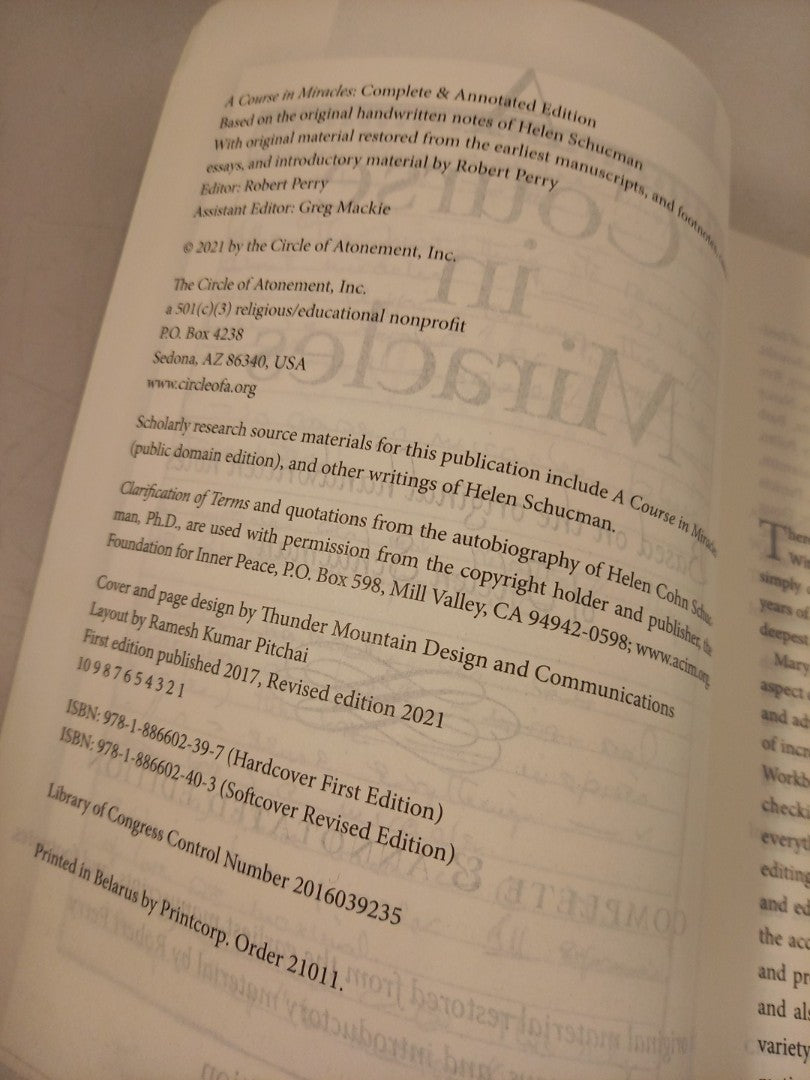 A Course in Miracles: Complete & Annotated Edition
Based on the original handwritten notes of Helen Schucman
With original material restored from the earliest manuscripts, and footnotes,
essays, and introductory material by Robert Perry
Editor: Robert Perry
Assistant Editor: Greg Mackie
© 2021 by the Circle of Atonement, Inc.
The Circle of Atonement, Inc.
a 501(c)(3) religious/educational nonprofit
P.O. Box 4238
Sedona, AZ 86340, USA
www.circleofa.org
Scholarly research source materials for this publication include A Course in Miracle
(public domain edition), and other writings of Helen Schucman.
Clarification of Terms and quotations from the autobiography of Helen Cohn Schuc
man, Ph.D., are used with permission from the copyright holder and publisher, the
Foundation for Inner Peace, P.O. Box 598, Mill Valley, CA 94942-0598; www.acim.org
Cover and page design by Thunder Mountain Design and Communications
Layout by Ramesh Kumar Pitchai
First edition published 2017, Revised edition 2021
10 9 8 7 6 5 4 3 2 1
ISBN: 978-1-886602-39-7 (Hardcover First Edition)
ISBN: 978-1-886602-40-3 (Softcover Revised Edition)
Library of Congress Control Number 2016039235
Printed in Belarus by Printcorp. Order 21011.
There
simply
years of
deepest
Mary
aspect
and ad
of incr
Workb
checki
everyt
editing
and ed
the acc
and pr
and als
variety